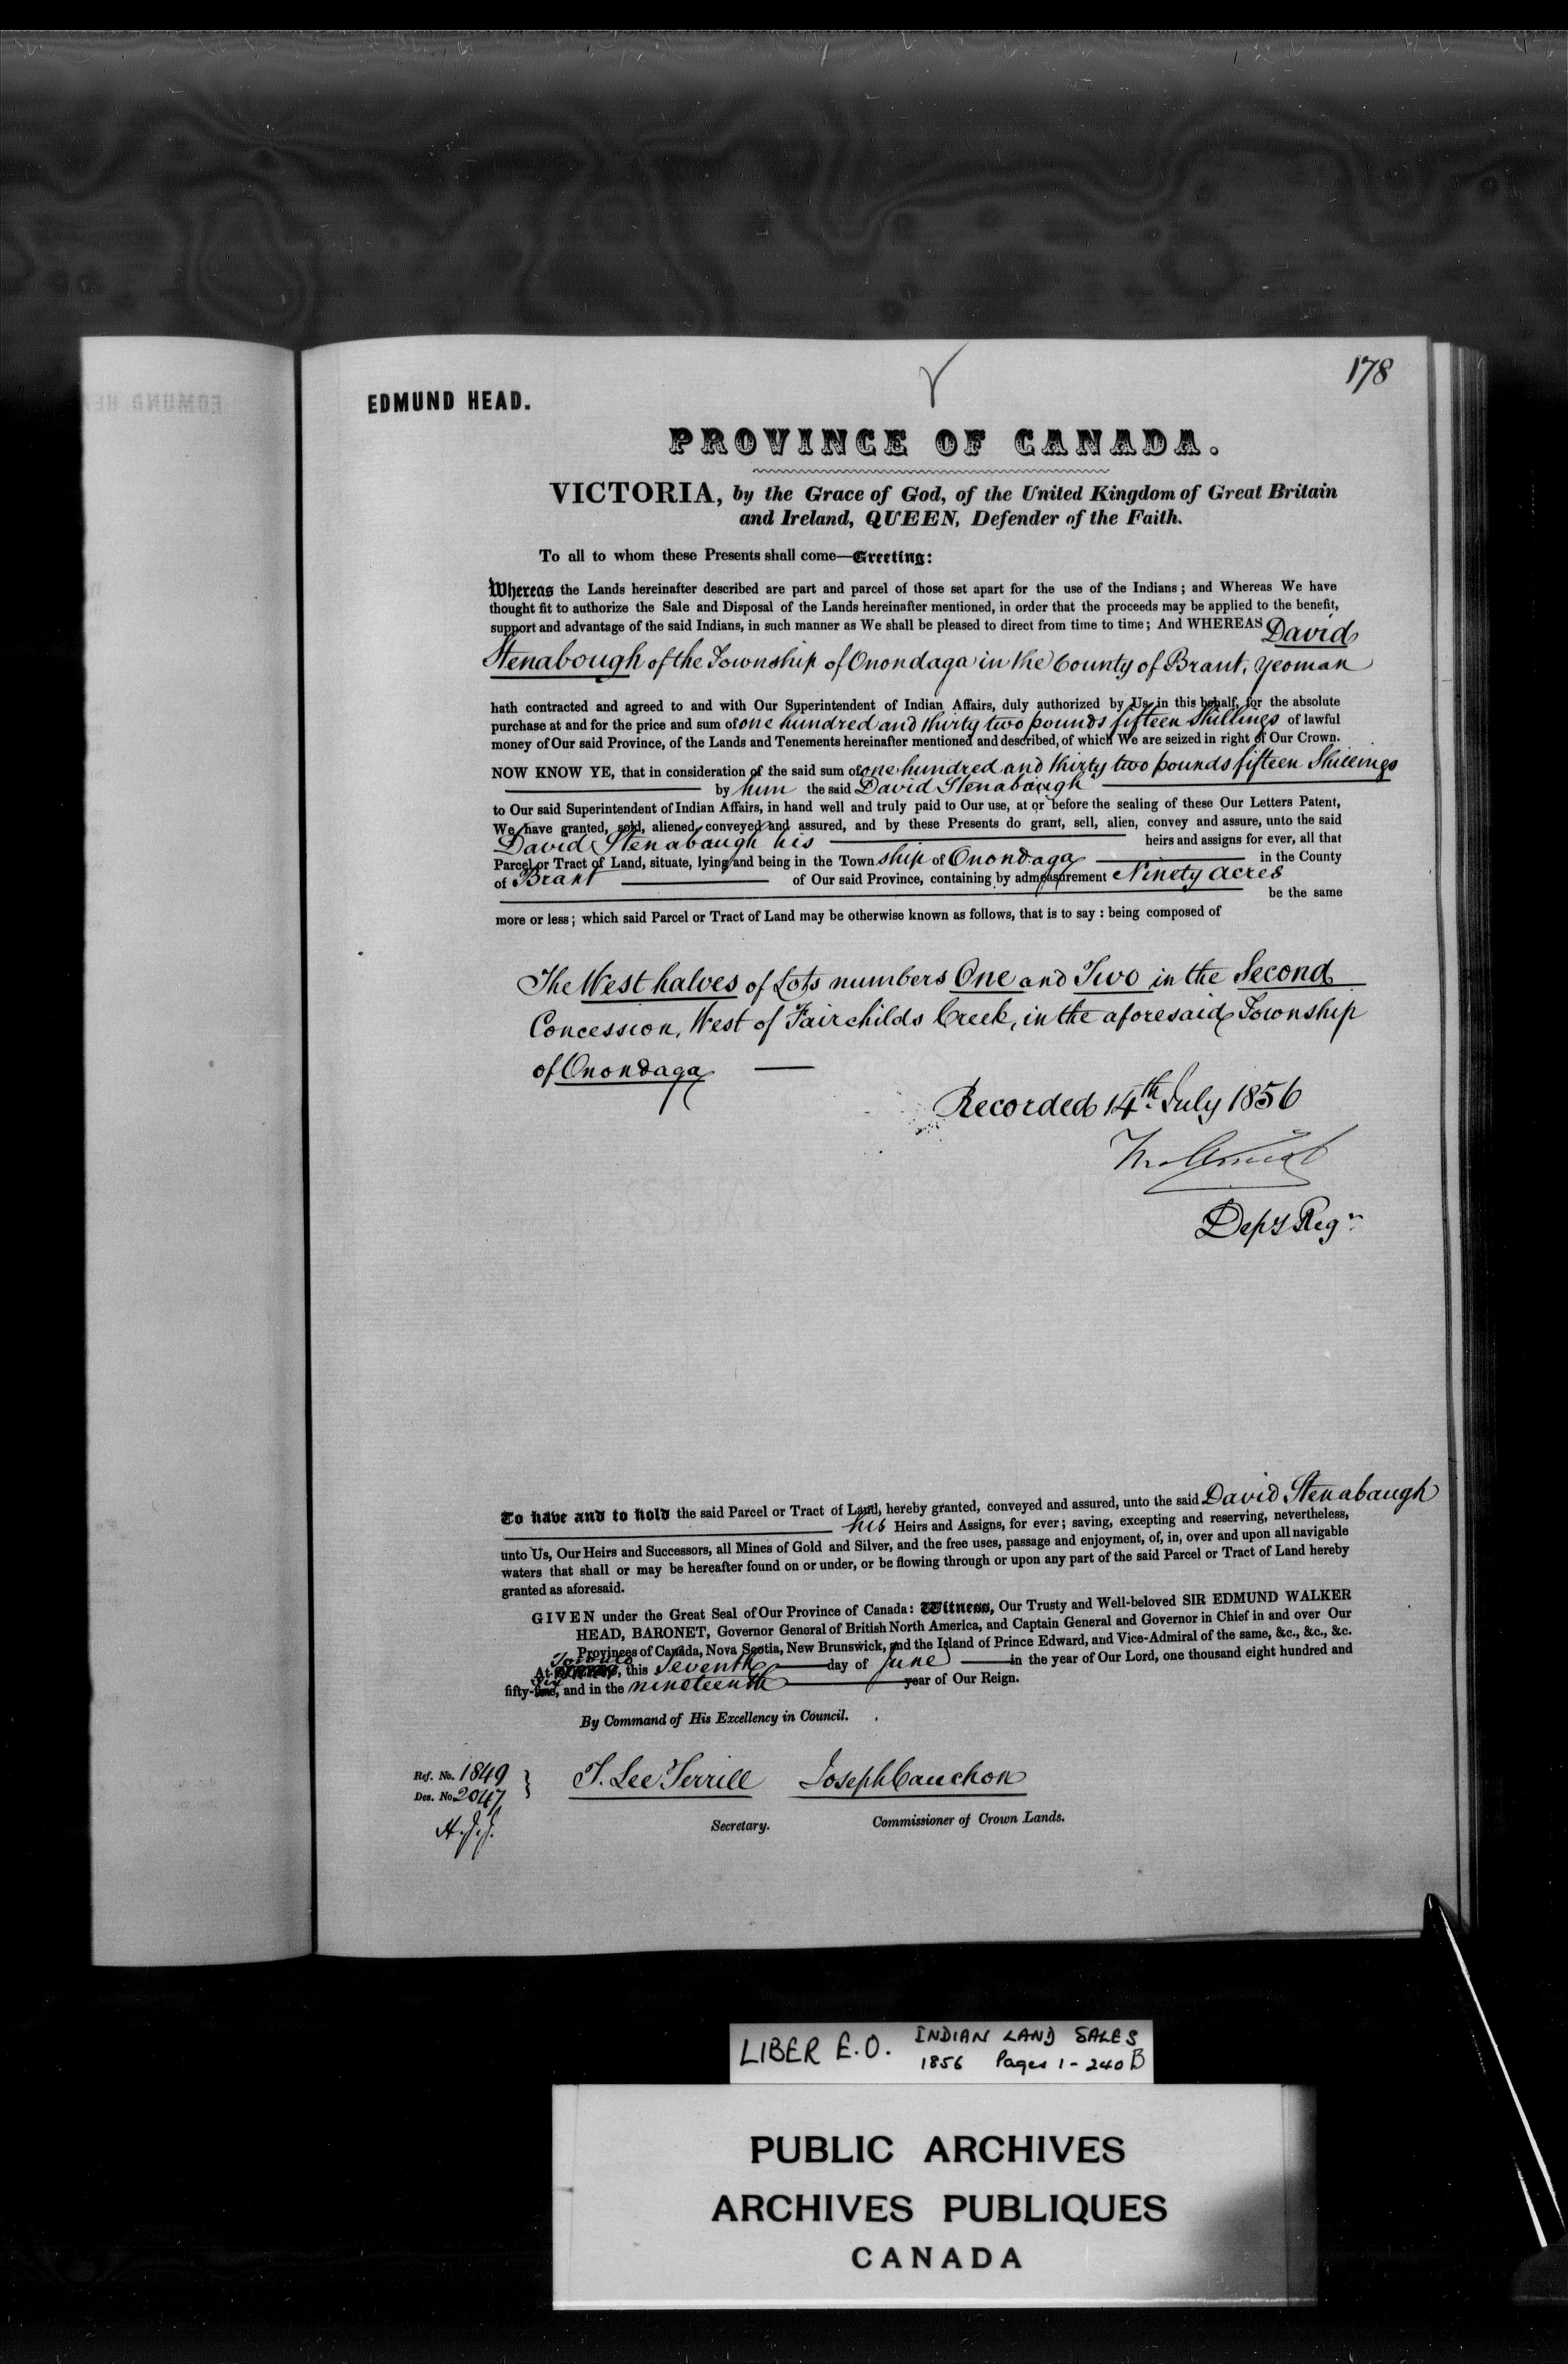 178
EDMUND HEAD.
PROVINCE OF CANADA.
VICTORIA, by the Grace of God, of the United Kingdom of Great Britain
and Ireland, QUEEN, Defender of the Faith.
To all to whom these Presents shall come—Greeting:
Whereas the Lands hereinafter described are part and parcel of those set apart for the use of the Indians; and Whereas We have
thought fit to authorize the Sale and Disposal of the Lands hereinafter mentioned, in order that the proceeds may be applied to the benefit,
support and advantage of the said Indians, in such manner as We shall be pleased to direct from time to time; And WHEREAS David
Stenabough of the Township of Onondaga in the County of Brant, Yeoman
hath contracted and agreed to and with Our Superintendent of Indian Affairs, duly authorized by Us in this behalf, for the absolute
purchase at and for the price and sum of one hundred and thirty two pounds fifteen Shillings of lawful
money of Our said Province, of the Lands and Tenements hereinafter mentioned and described, of which We are seized in right of Our Crown.
NOW KNOW YE, that in consideration of the said sum of one hundred and thirty two pounds fifteen Shillings
by him the said David Stenabaugh
to Our said Superintendent of Indian Affairs, in hand well and truly paid to Our use, at or before the sealing of these Our Letters Patent,
We have granted, sold, aliened, conveyed and assured, and by these Presents do grant, sell, alien, convey and assure, unto the said
David Stenabaugh his heirs and assigns for ever, all that
Parcel or Tract of Land, situate, lying and being in the Town ship of Onondaga in the County
of Brant of Our said Province, containing by admeasurement Ninety acres
be the same
more or less; which said Parcel or Tract of Land may be otherwise known as follows, that is to say: being composed of
The West halves of Lots numbers One and Two in the Second
Concession, West of Fairchilds Creek, in the aforesaid Township
of Onondaga
Recorded 14th July 1856
Depy Regr
To have and to hold the said Parcel or Tract of Land, hereby granted, conveyed and assured, unto the said David Stenabaugh
his Heirs and Assigns, for ever; saving, excepting and reserving, nevertheless,
unto Us, Our Heirs and Successors, all Mines of Gold and Silver, and the free uses, passage and enjoyment, of, in, over and upon all navigable
waters that shall or may be hereafter found on or under, or be flowing through or upon any part of the said Parcel or Tract of Land hereby
granted as aforesaid.
GIVEN under the Great Seal of Our Province of Canada: Witness, Our Trusty and Well-beloved SIR EDMUND WALKER
HEAD, BARONET, Governor General of British North America, and Captain General and Governor in Chief in and over Our
Provinces of Canada, Nova Scotia, New Brunswick, and the Island of Prince Edward, and Vice-Admiral of the same, &c., &c., &c.
At Toronto, this Seventh day of June in the year of Our Lord, one thousand eight hundred and
fifty-Six, and in the nineteenth year of Our Reign.
By Command of His Excellency in Council.
Ref. No. 1849
Des. No. 2047
T. Lee Terrill Joseph Cauchon
Secretary. Commissioner of Crown Lands.
LIBER E.O. INDIAN LAND SALES
1856 Pages 1-240B
PUBLIC ARCHIVES
ARCHIVES PUBLIQUES
CANADA